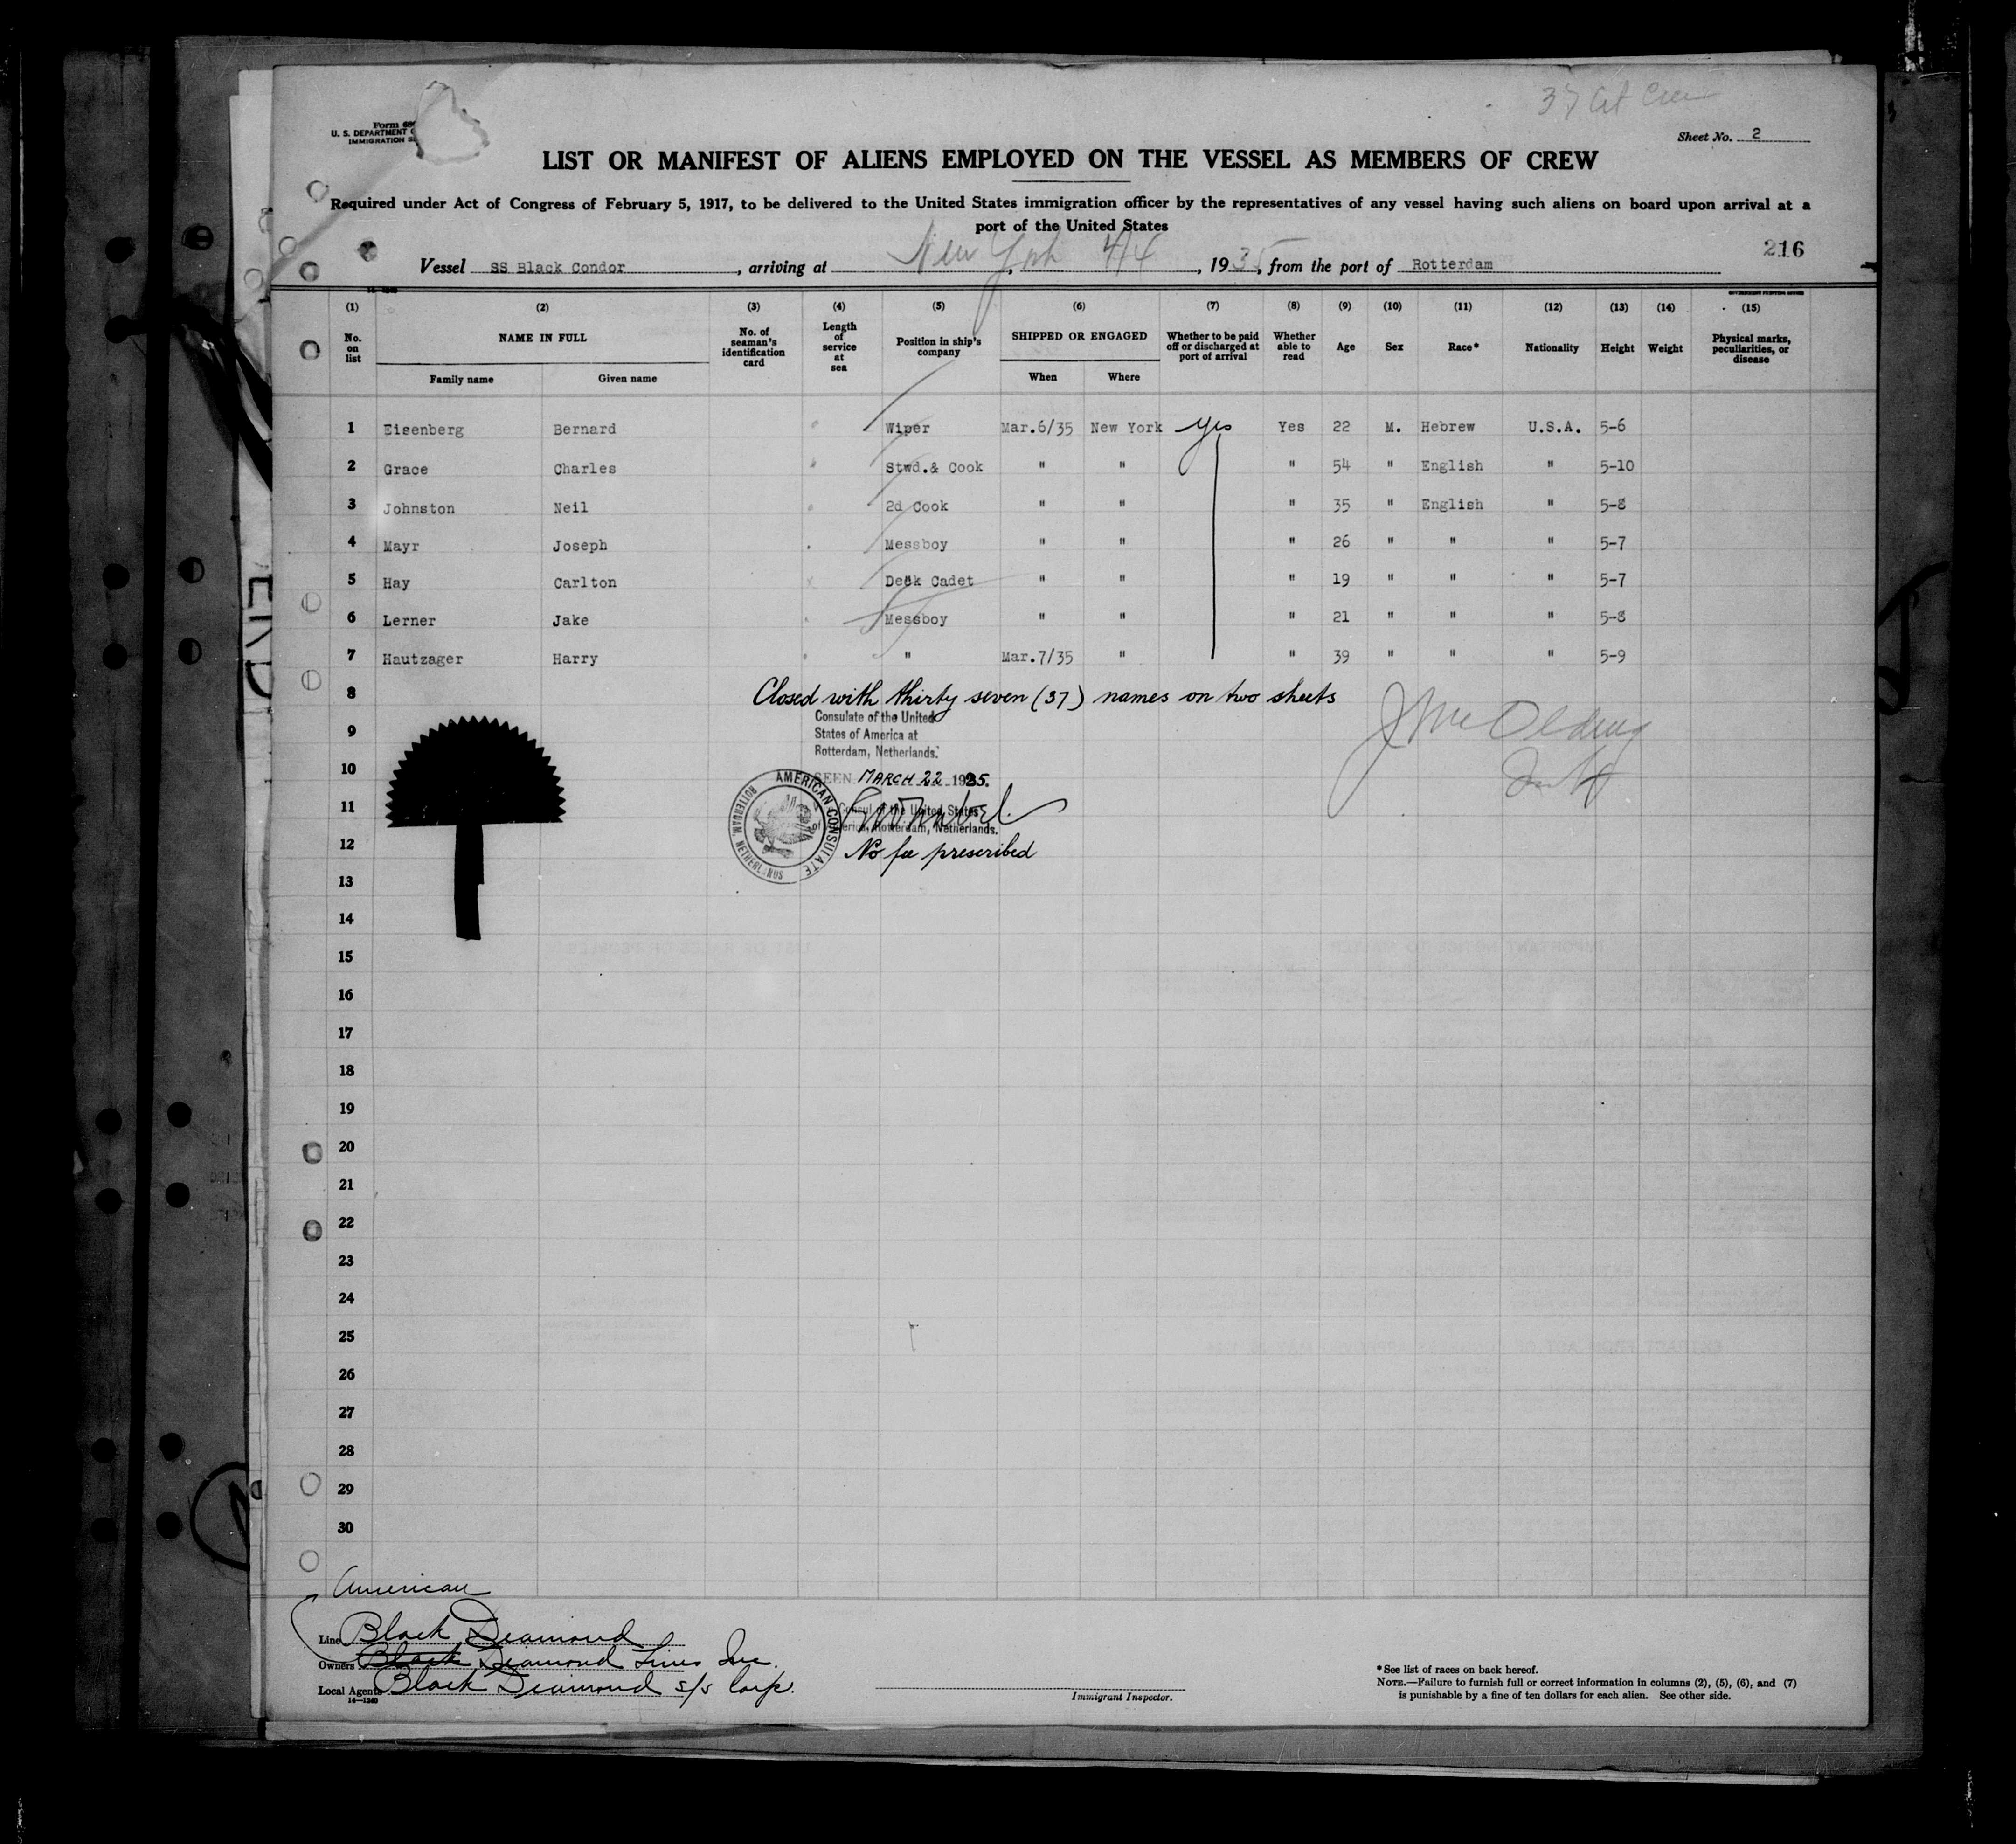 37 Cit Crew
Form 68
U. S. DEPARTMENT
IMMIGRATION
Sheet No. 2
LIST OR MANIFEST OF ALIENS EMPLOYED ON THE VESSEL AS MEMBERS OF CREW
Required under Act of Congress of February 5, 1917, to be delivered to the United States immigration officer by the representatives of any vessel having such aliens on board upon arrival at a
port of the United States
216
Vessel SS Black Condor, arriving at New York 4/4, 1935, from the port of Rotterdam
(1) (2) (3) (4) (5) (6) (7) (8) (9) (10) (11) (12) (13) (14) (15)
No. on list NAME IN FULL No. of seaman's identification card Length of service at sea Position in ship's company SHIPPED OR ENGAGED Whether to be paid off or discharged at port of arrival Whether able to read Age Sex Race* Nationality Height Weight Physical marks, peculiarities, or disease
Family name Given name When Where
1 Eisenberg Bernard Wiper Mar.6/35 New York yes Yes 22 M. Hebrew U.S.A. 5-6
2 Grace Charles Stwd.& Cook " " " 54 " English " 5-10
3 Johnston Neil 2d Cook " " " 35 " English " 5-8
4 Mayr Joseph Messboy " " " 26 " " " 5-7
5 Hay Carlton Deck Cadet " " " 19 " " " 5-7
6 Lerner Jake Messboy " " " 21 " " " 5-8
7 Hautzager Harry " Mar.7/35 " " 39 " " " 5-9
8 Closed with thirty seven (37) names on two sheets
Consulate of the United
9 States of America at
Rotterdam, Netherlands.
10 SEEN MARCH 22 1935.
AMERICAN CONSULATE
ROTTERDAM, NETHERLANDS
11 Consul of the United States
of America, Rotterdam, Netherlands.
12 No fee prescribed
13
14
15
16
17
18
19
20
21
22
23
24
25
26
27
28
29
30
American
Line Black Diamond
Owners Black Diamond Lines Inc.
Local Agents Black Diamond S/S Corp.
14—1240
Immigrant Inspector.
*See list of races on back hereof.
NOTE.—Failure to furnish full or correct information in columns (2), (5), (6), and (7)
is punishable by a fine of ten dollars for each alien. See other side.